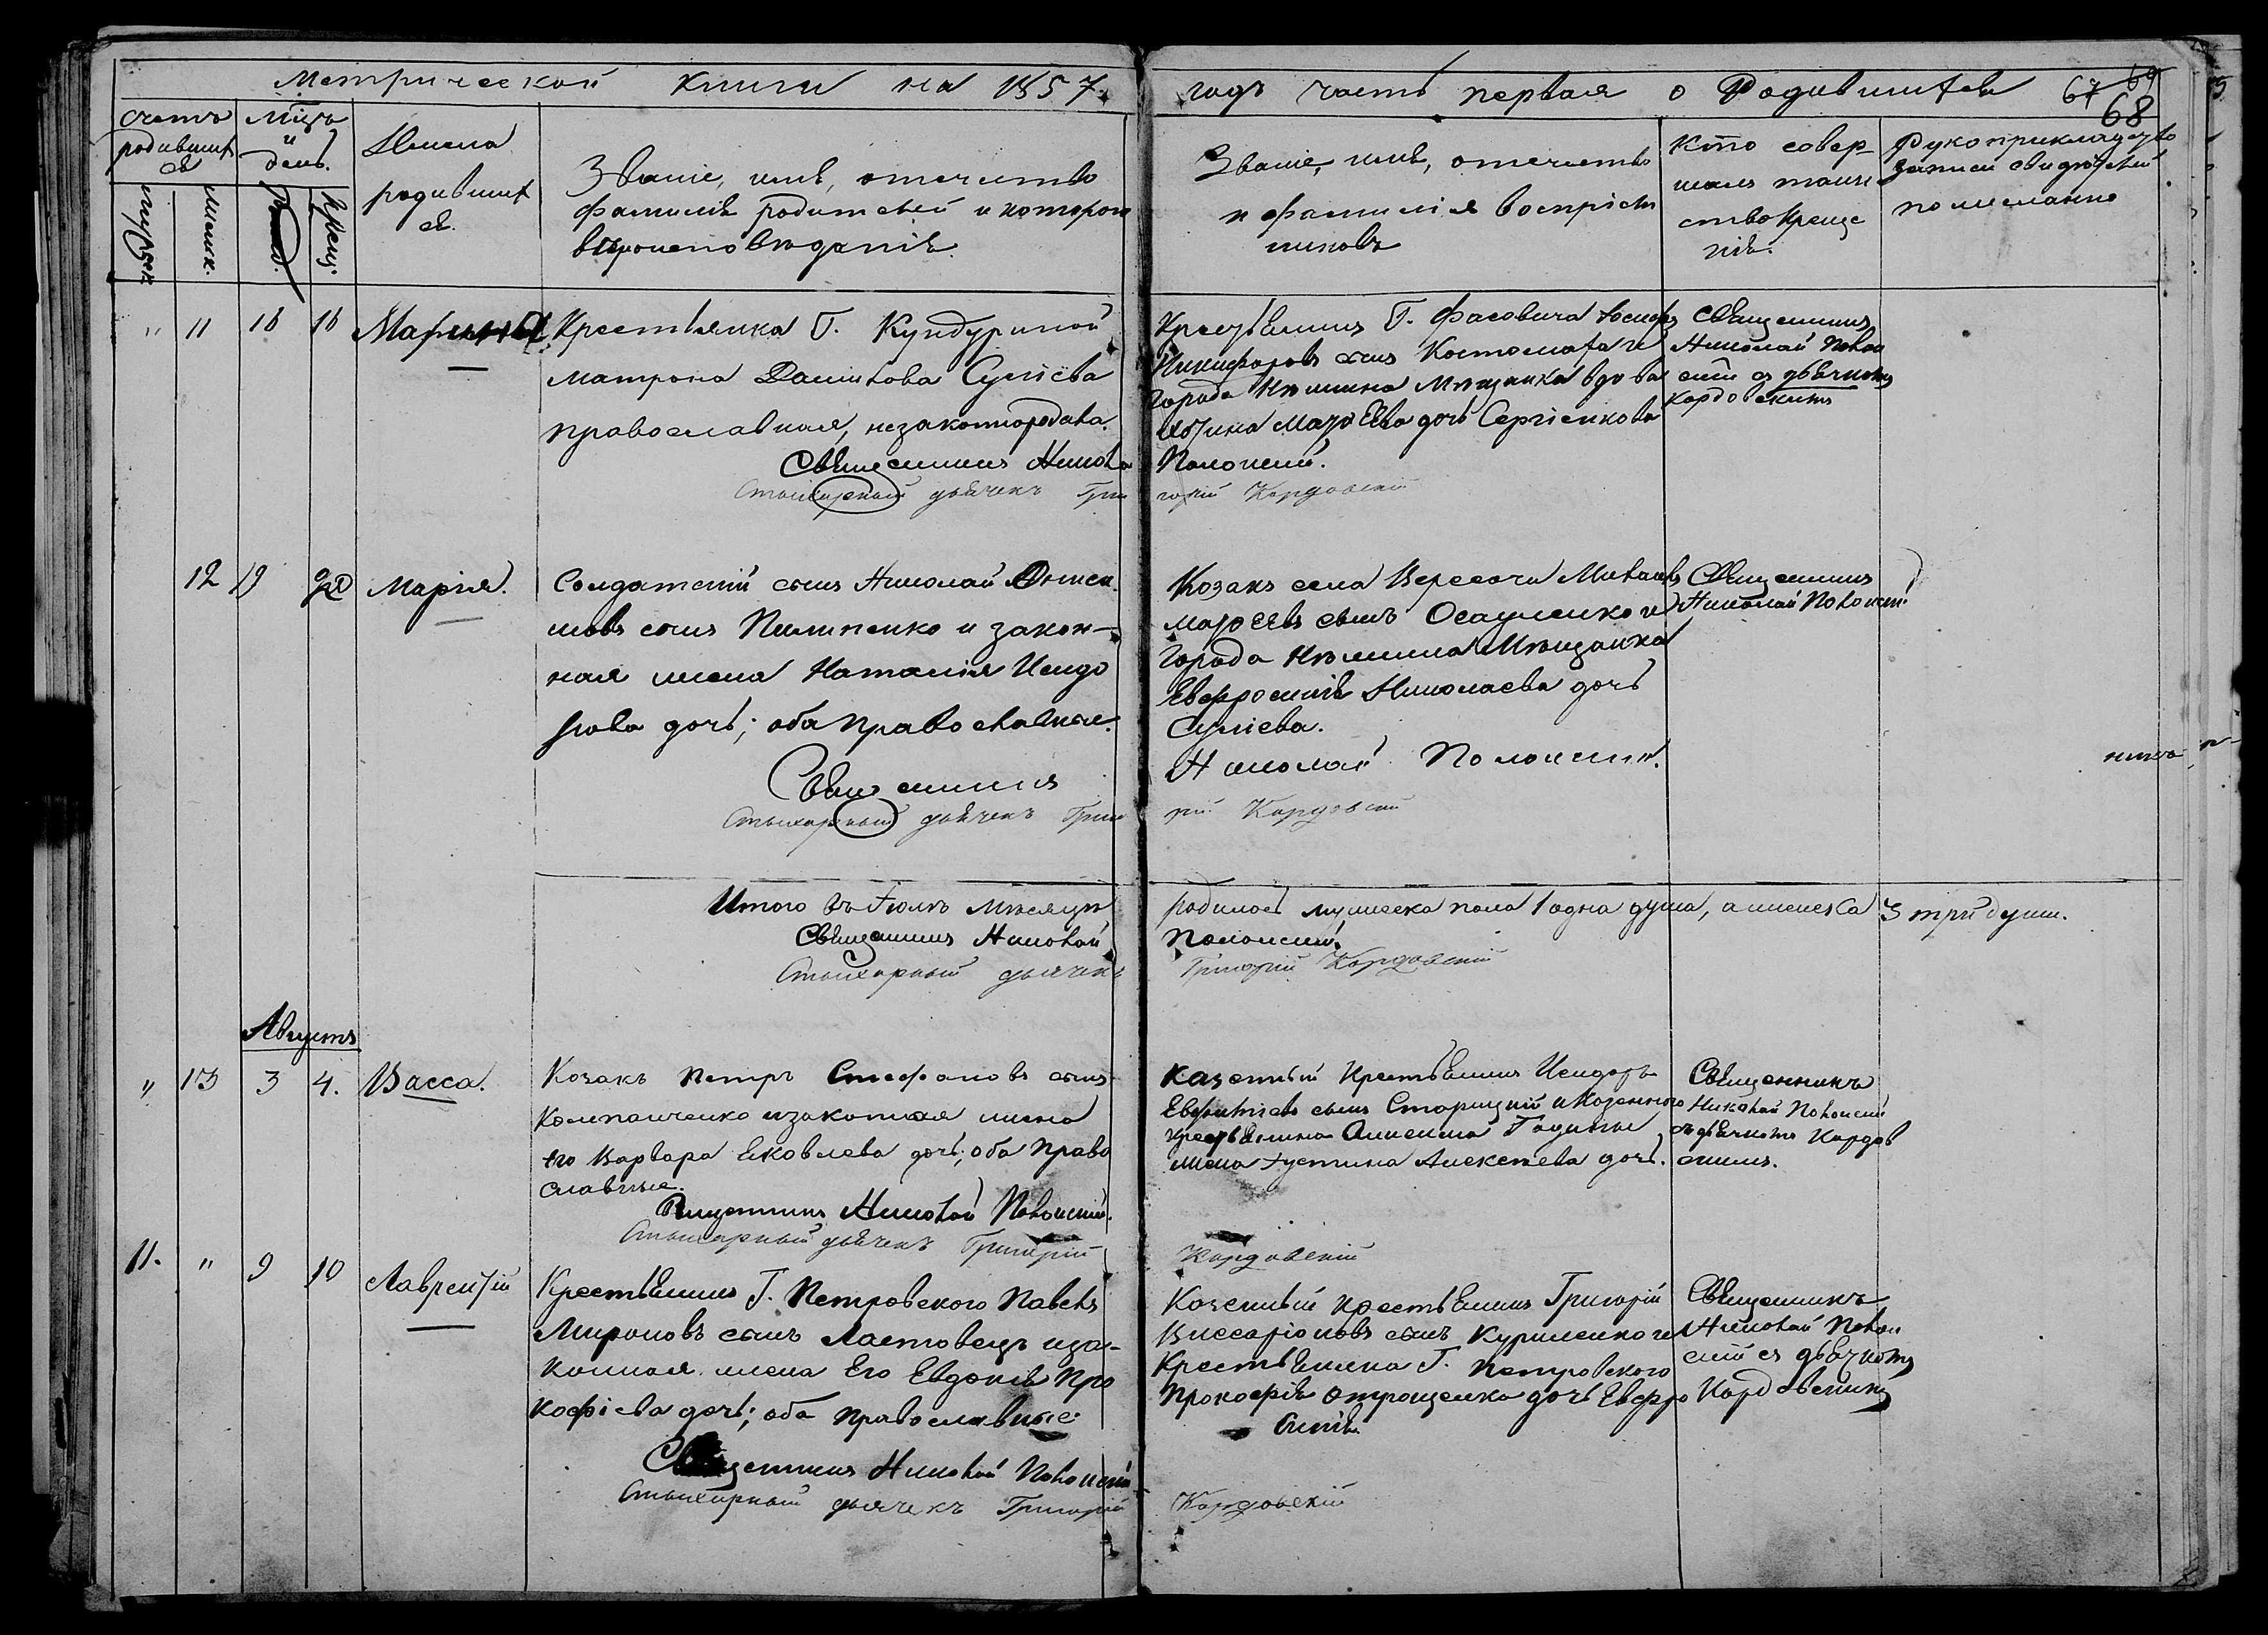 Метрической книги на 1857.
годъ часть первая о Родившихся 67 69
68
счетъ
родивших
ся
мѣсяцъ
и
день.
Имена
родивших
ся.
Званіе, имя, отечество
фамилія родителей и которого
вѣроисповѣданія.
мужеск
женск.
рожд.
крещ.
Званіе, имя, отечество
и фамилія воспріем
никовъ
Кто совер-
шалъ таин-
ство креще
нія.
Рукоприкладство
записи свидѣтелей
по желанію
" 11 18 18 Марина
Крестьянка Г. Кундуриной
Матрона Данилова Сугіева
православная, незаконнородна.
Священникъ Никола
Стихарный дьячекъ Гри
Крестьянинъ Г. Фасовича Іосифъ
Никифоровъ сынъ Костомаха и
города Нѣжина Мѣщанка вдова
Маѳѣева дочь Сергіенкова
Полонскій.
горій Кордовскій
Священникъ
Николай Полон
скій съ дьячкомъ
Кордовскимъ
12 19 20 Марія.
Солдатскій сынъ Николай
мовъ сынъ Пилипенко и закон-
ная жена Наталія Исидо
рова дочь; оба православные.
Священникъ
Стихарный дьячекъ Григо
Козакъ села Вересочи Михаилъ
Маѳѣевъ сынъ Осауленко и
города Нѣжина Мѣщанка
Евфросинія Николаева дочь
Сугіева.
Николай Полонскій.
рій Кордовскій
Священникъ
Николай Полонскій
никъ
Итого въ Іюлѣ мѣсяцѣ
Священникъ Николай
Стихарный дьячекъ
родилось мужеска пола 1 одна душа, а женска 3 три души.
Полонскій
Григорій Кордовскій
Августъ
" 13 3 4. Васса.
Козакъ Петръ Стефановъ сынъ
Компанченко и законная жена
его Варвара Яковлева дочь; оба право
славные.
Священникъ Николай Полонскій.
Стихарный дьячекъ Григорій
Казенный крестьянинъ Исидоръ
Евфиміевъ сынъ Старицкій и Казенного
крестьянина Анисима Годины
жена Іустина Алексѣева дочь.
Кордовскій
Священникъ
Николай Полонскій
съ дьячкомъ Кордов
скимъ.
11. " 9 10 Лаврентій
Крестьянинъ Г. Петровского Павелъ
Мироновъ сынъ Ластовецъ и за-
конная жена Его Евдокія Про
кофіева дочь; оба православные:
Священникъ Николай Полонскій
Стихарный дьячекъ Григорій
Казенный крестьянинъ Григорій
Виссаріоновъ сынъ Куриленко и
Крестьянина Г. Петровского
Прокофія Отрощенка дочь Евфро
синія.
Кордовскій
Священникъ
Николай Полон
скій съ дьячкомъ
Кордовскимъ